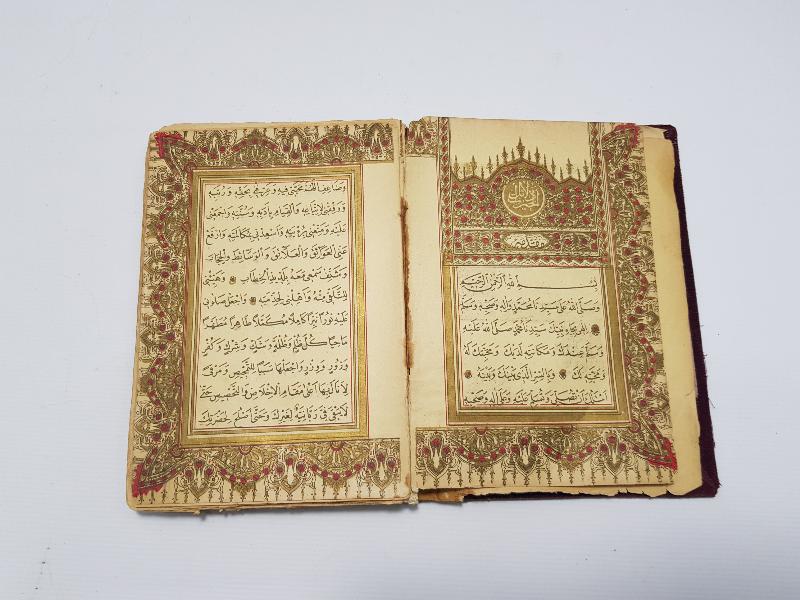 بسم الله الرحمن الرحيم
وصلى الله على سيدنا محمد وآله وصحبه وسلم
اللهم بجاه نبيك سيدنا محمد صلى الله عليه
وسلم عندك ومكانته لديك ومحبتك له
ومحبته لك وبالسر الذي بينك وبينه
اسئلك ان تصلي وتسلم عليه وعلى آله وصحبه
وضاعف اللهم محبتي فيه وعرفني بحقه ورتبه
ووفقني لاتباعه والقيام بادبه وسنته واجمعني
عليه ومتعني برؤيته واسعدني بمكالمته وارفع
عني العوائق والعلائق والوسائط والحجاب
وشنف سمعي معه بلذيذ الخطاب وهيئني
للتلقي منه واهلني لخدمته واجعل صلاتي
عليه نورا نيرا كاملا مكملا طاهرا مطهرا
ماحيا كل ظلم وظلمة وشك وشرك وكفر
وزور ووزر واجعلها سببا للتمحيص ومرقى
لانال بها اعلى مقام الاخلاص والتخصيص حتى
لا يبقى في ربانية لغيرك وحتى اصلح لحضرتك